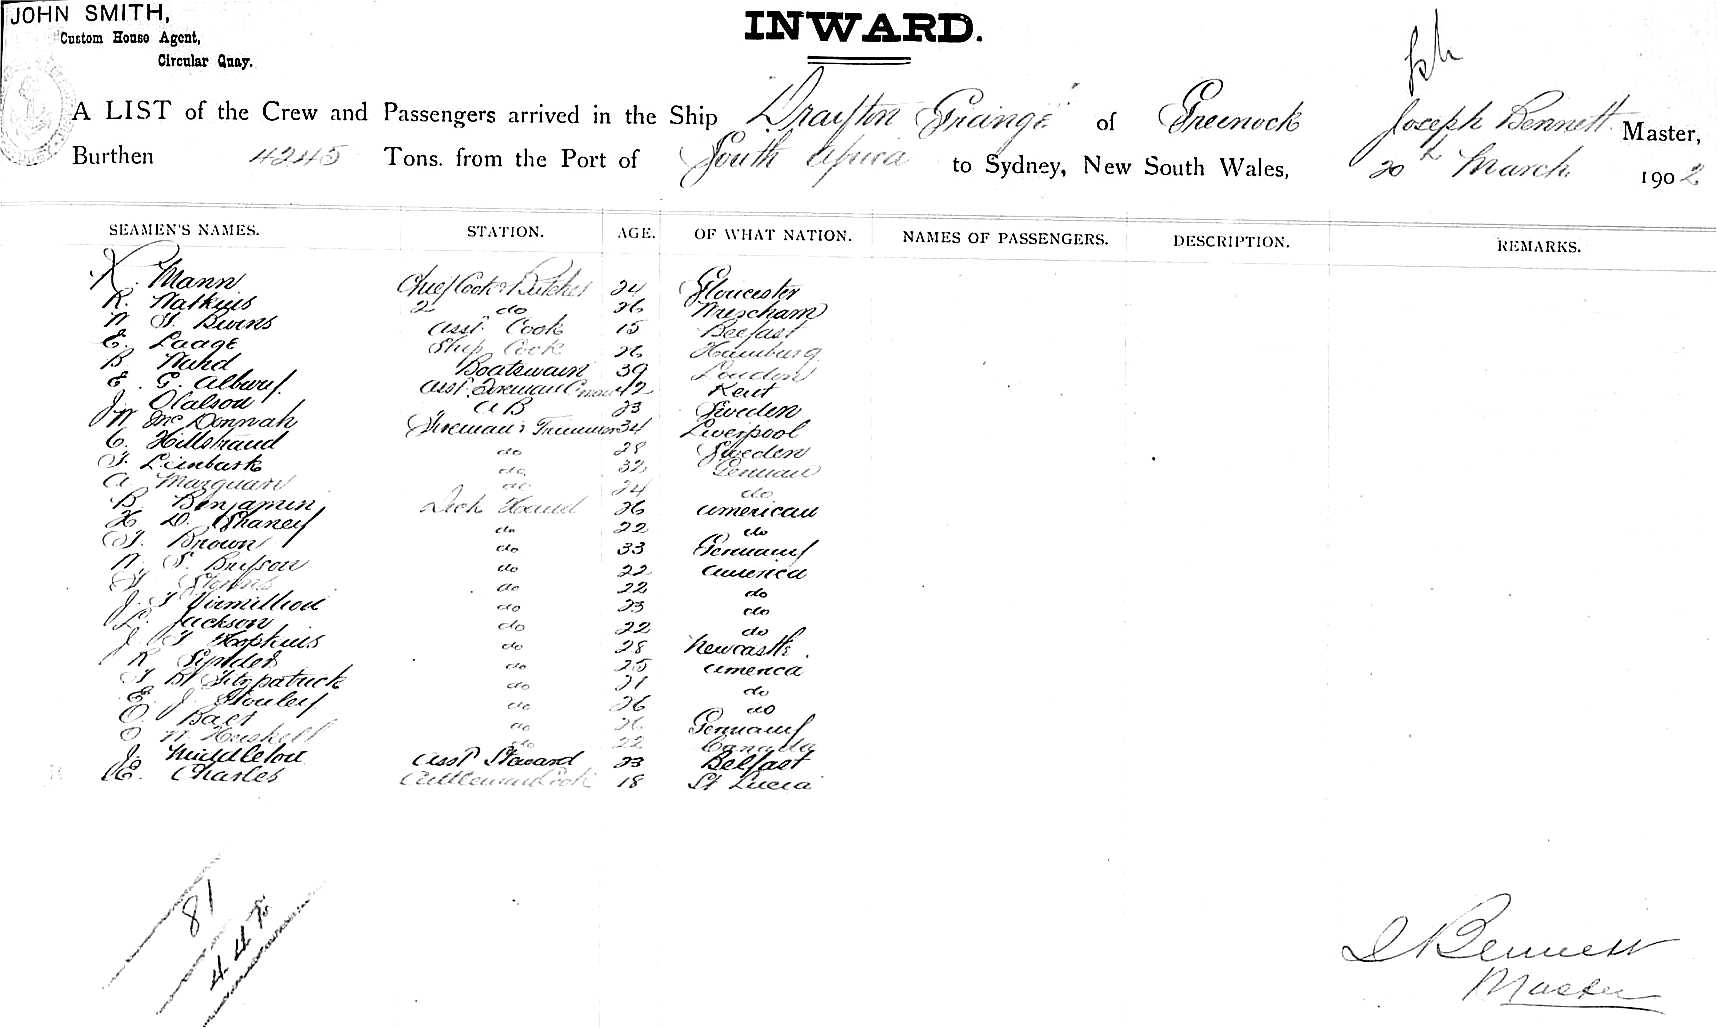 JOHN SMITH,
Custom House Agent,
Circular Quay.
INWARD.
A LIST of the Crew and Passengers arrived in the Ship "Drayton Grange" of Greenock Joseph Bennett Master,
Burthen 4245 Tons. from the Port of South Africa to Sydney, New South Wales, 20th March 1902
SEAMEN'S NAMES. STATION. AGE. OF WHAT NATION. NAMES OF PASSENGERS. DESCRIPTION. REMARKS.
Mann Chief Cook & Butcher 24 Gloucester
R. Watkins 2 do 26
W. Burns Asst. Cook 15 Belfast
E. Laage Ship Cook 26 Hamburg
B Boatswain 39 London
E. G. Asst. 42 Kent
J. Olalson AB 23 Sweden
W McDonnah Fireman & Trimmer 34 Liverpool
C. Hillstrand do 28 Sweden
do 32 German
A do 24 do
B Benjamin Deck Hand 26 American
H D. Shaney do 22 do
Brown do 33 Germany
W. S. do 22 America
do 22 do
J. do 23 do
L. Jackson do 22 do
J T Hopkins do 28 Newcastle.
R do 25 America
Fitzpatrick do 21 do
E. J. do 26 do
O. Baer do 26 Germany
O W do 22 Canada
J. Middleton Asst Steward 23 Belfast
E. Charles Cook 18 St Lucia
81
Bennett
Master